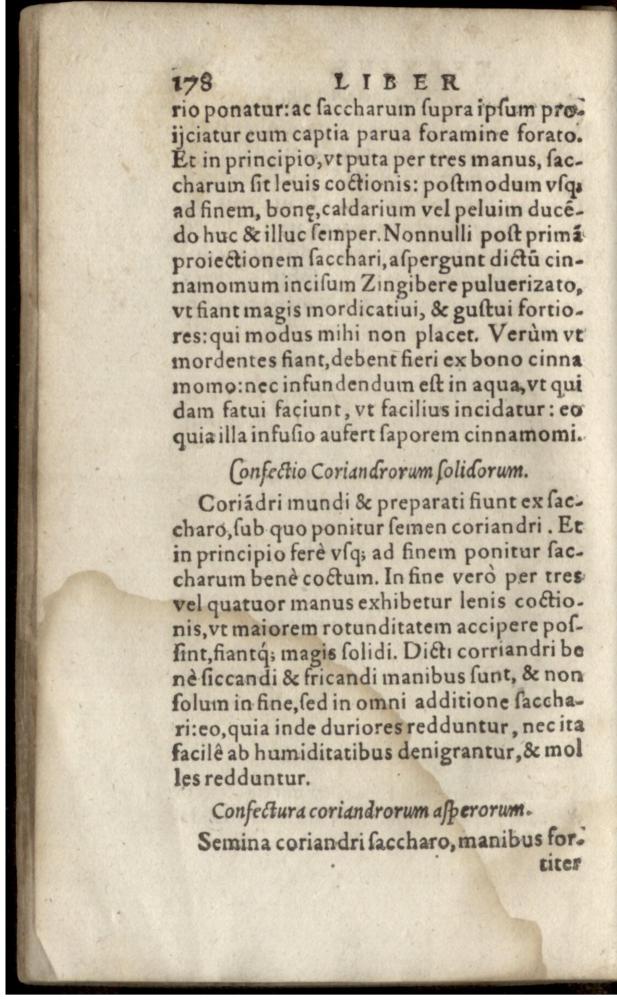 178 LIBER
rio ponatur: ac ſaccharum ſupra ipſum pro-
ijciatur cum captia parua foramine forato.
Et in principio, vt puta per tres manus, ſac-
charum ſit leuis coctionis: poſtmodum vſq;
ad finem, bonę, caldarium vel peluim ducē-
do huc & illuc ſemper. Nonnulli poſt primā
proiectionem ſacchari, aſpergunt dictū cin-
namomum inciſum Zingibere puluerizato,
vt fiant magis mordicatiui, & guſtui fortio-
res: qui modus mihi non placet. Verùm vt
mordentes fiant, debent fieri ex bono cinna
momo: nec infundendum eſt in aqua, vt qui
dam fatui faciunt, vt facilius incidatur: eo
quia illa infuſio aufert ſaporem cinnamomi.
Confectio Coriandrorum ſolidorum.
Coriādri mundi & preparati fiunt ex ſac-
charo, ſub quo ponitur ſemen coriandri. Et
in principio ferè vſq; ad finem ponitur ſac-
charum benè coctum. In fine verò per tres
vel quatuor manus exhibetur lenis coctio-
nis, vt maiorem rotunditatem accipere poſ-
ſint, fiantq́; magis ſolidi. Dicti corriandri be
nè ſiccandi & fricandi manibus ſunt, & non
ſolum in fine, ſed in omni additione ſaccha-
ri: eo, quia inde duriores redduntur, nec ita
facilê ab humiditatibus denigrantur, & mol
les redduntur.
Confectura coriandrorum aſperorum.
Semina coriandri ſaccharo, manibus for-
titer